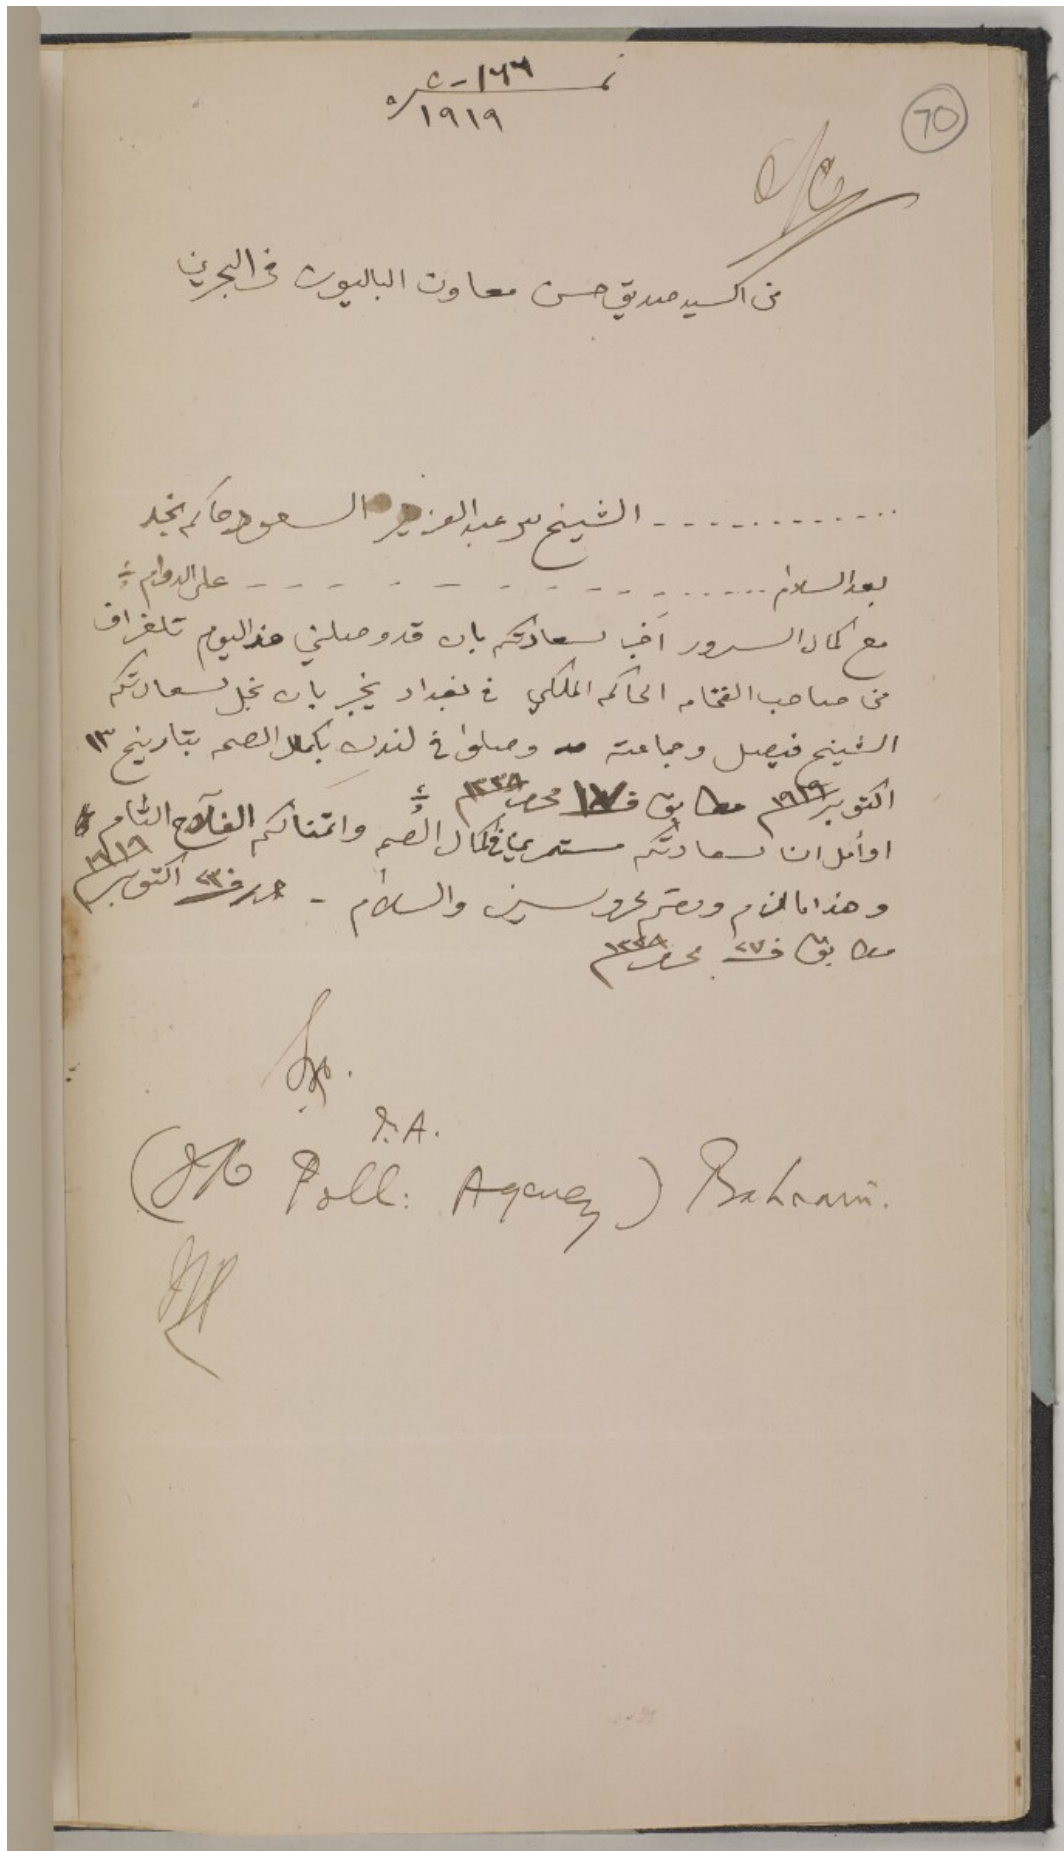 نمـ ١٦٦ - c
١٩١٩
70
o/c
من السيد صديق حسن معاون الباليوز في البحرين
............ الشيخ سر عبد العزيز السعود حاكم نجد
بعد السلام ............ على الدوام
مع كمال السرور أخبر سعادتكم بان قد وصلني هذا اليوم تلغراف
من صاحب الفخامه الحاكم الملكي في بغداد يخبر بان نجل سعادتكم
الشيخ فيصل وجماعته وصلوا في لندن بكمال الصحه بتاريخ ١٣
اكتوبر ١٩١٩ مطابق ف ١٧ محرم ١٣٣٨
اوأمل ان سعادتكم مستمرين في كمال الصحه واتمنالكم الفلاح التام
وهذا ما لزم ودمتم محروسين والسلام - حرر في ٢٣ اكتوبر ١٩١٩
مطابق ف ٢٧ محرم ١٣٣٨
P.A.
Poll: Agency) Bahrain.